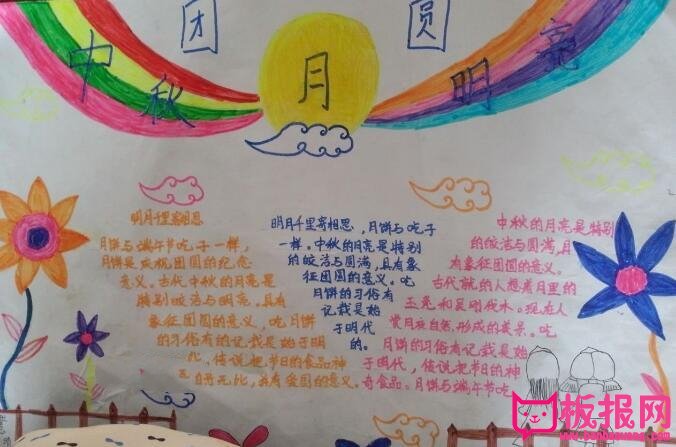 团 圆
中秋 月 明亮
明月千里寄相思
月饼与端午节吃子一样,
月饼是庆祝团圆的纪念
意义。古代中秋的月亮是
特别皎洁与明亮。具有
象征团圆的意义,吃月饼
的习俗有的记载是始于明
传说把节日的食品神
有爱国的意义。
明月千里寄相思,月饼与吃子
一样。中秋的月亮是特别
的皎洁与圆满,具有象
征团圆的意义。吃
月饼的习俗有
记载是始
于明代
的。
中秋的月亮是特别
的皎洁与圆满,具
有象征团圆的意义。
古代就的人想着月里的
玉兔和吴刚伐木。现在人
赏月夜自然,形成的美景。吃
月饼的习俗有记载是始
于明代,传说把节日的神
奇食品。月饼与端午节吃
板报网